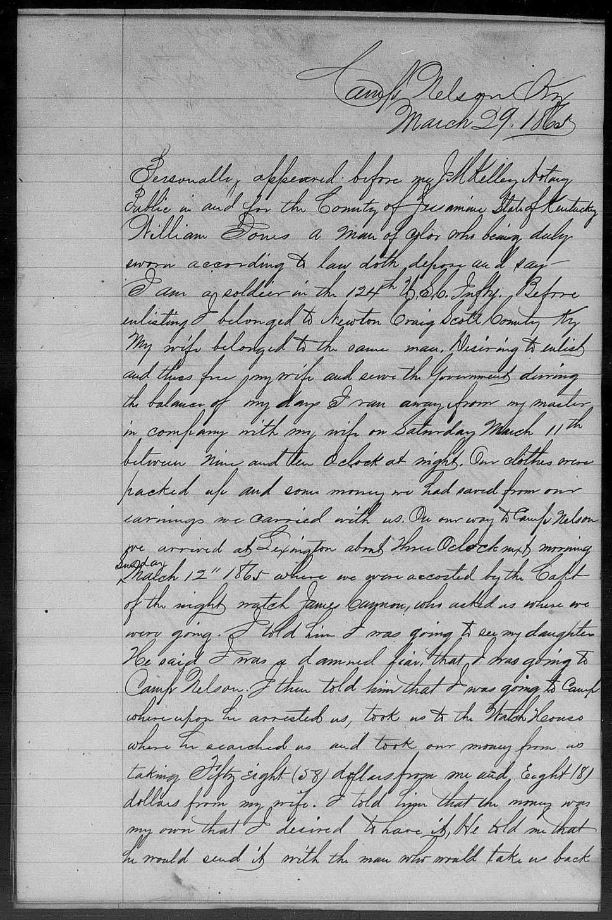 Camp Nelson Ky
March 29, 1865
Personally appeared before me J M Kelley Notary
Public in and for the County of Jessamine State of Kentucky
William Jones a man of color who being duly
sworn according to law doth depose and say
I am a soldier in the 124th U.S.C. Infty. Before
enlisting I belonged to Newton Craig Scott County Ky
My wife belonged to the same man. Desiring to enlist
and thus free my wife and serve the Government during
the balance of my days I ran away from my master
in company with my wife on Saturday March 11th
between nine and ten Oclock at night. Our clothes were
packed up and some money we had saved from our
earnings we carried with us. On our way to Camp Nelson
we arrived at Lexington about Three Oclock next morning
Sunday
March 12" 1865 where we were accosted by the Capt
of the night watch James Cannon, who asked us where we
were going. I told him I was going to see my daughter
He said I was a damned liar, that I was going to
Camp Nelson. I then told him that I was going to Camp
whereupon he arrested us, took us to the Watch House
where he searched us and took our money from us
taking Fifty eight (58) dollars from me and Eight (8)
dollars from my wife. I told him that the money was
my own that I desired to have it, He told me that
he would send it with the man who would take us back